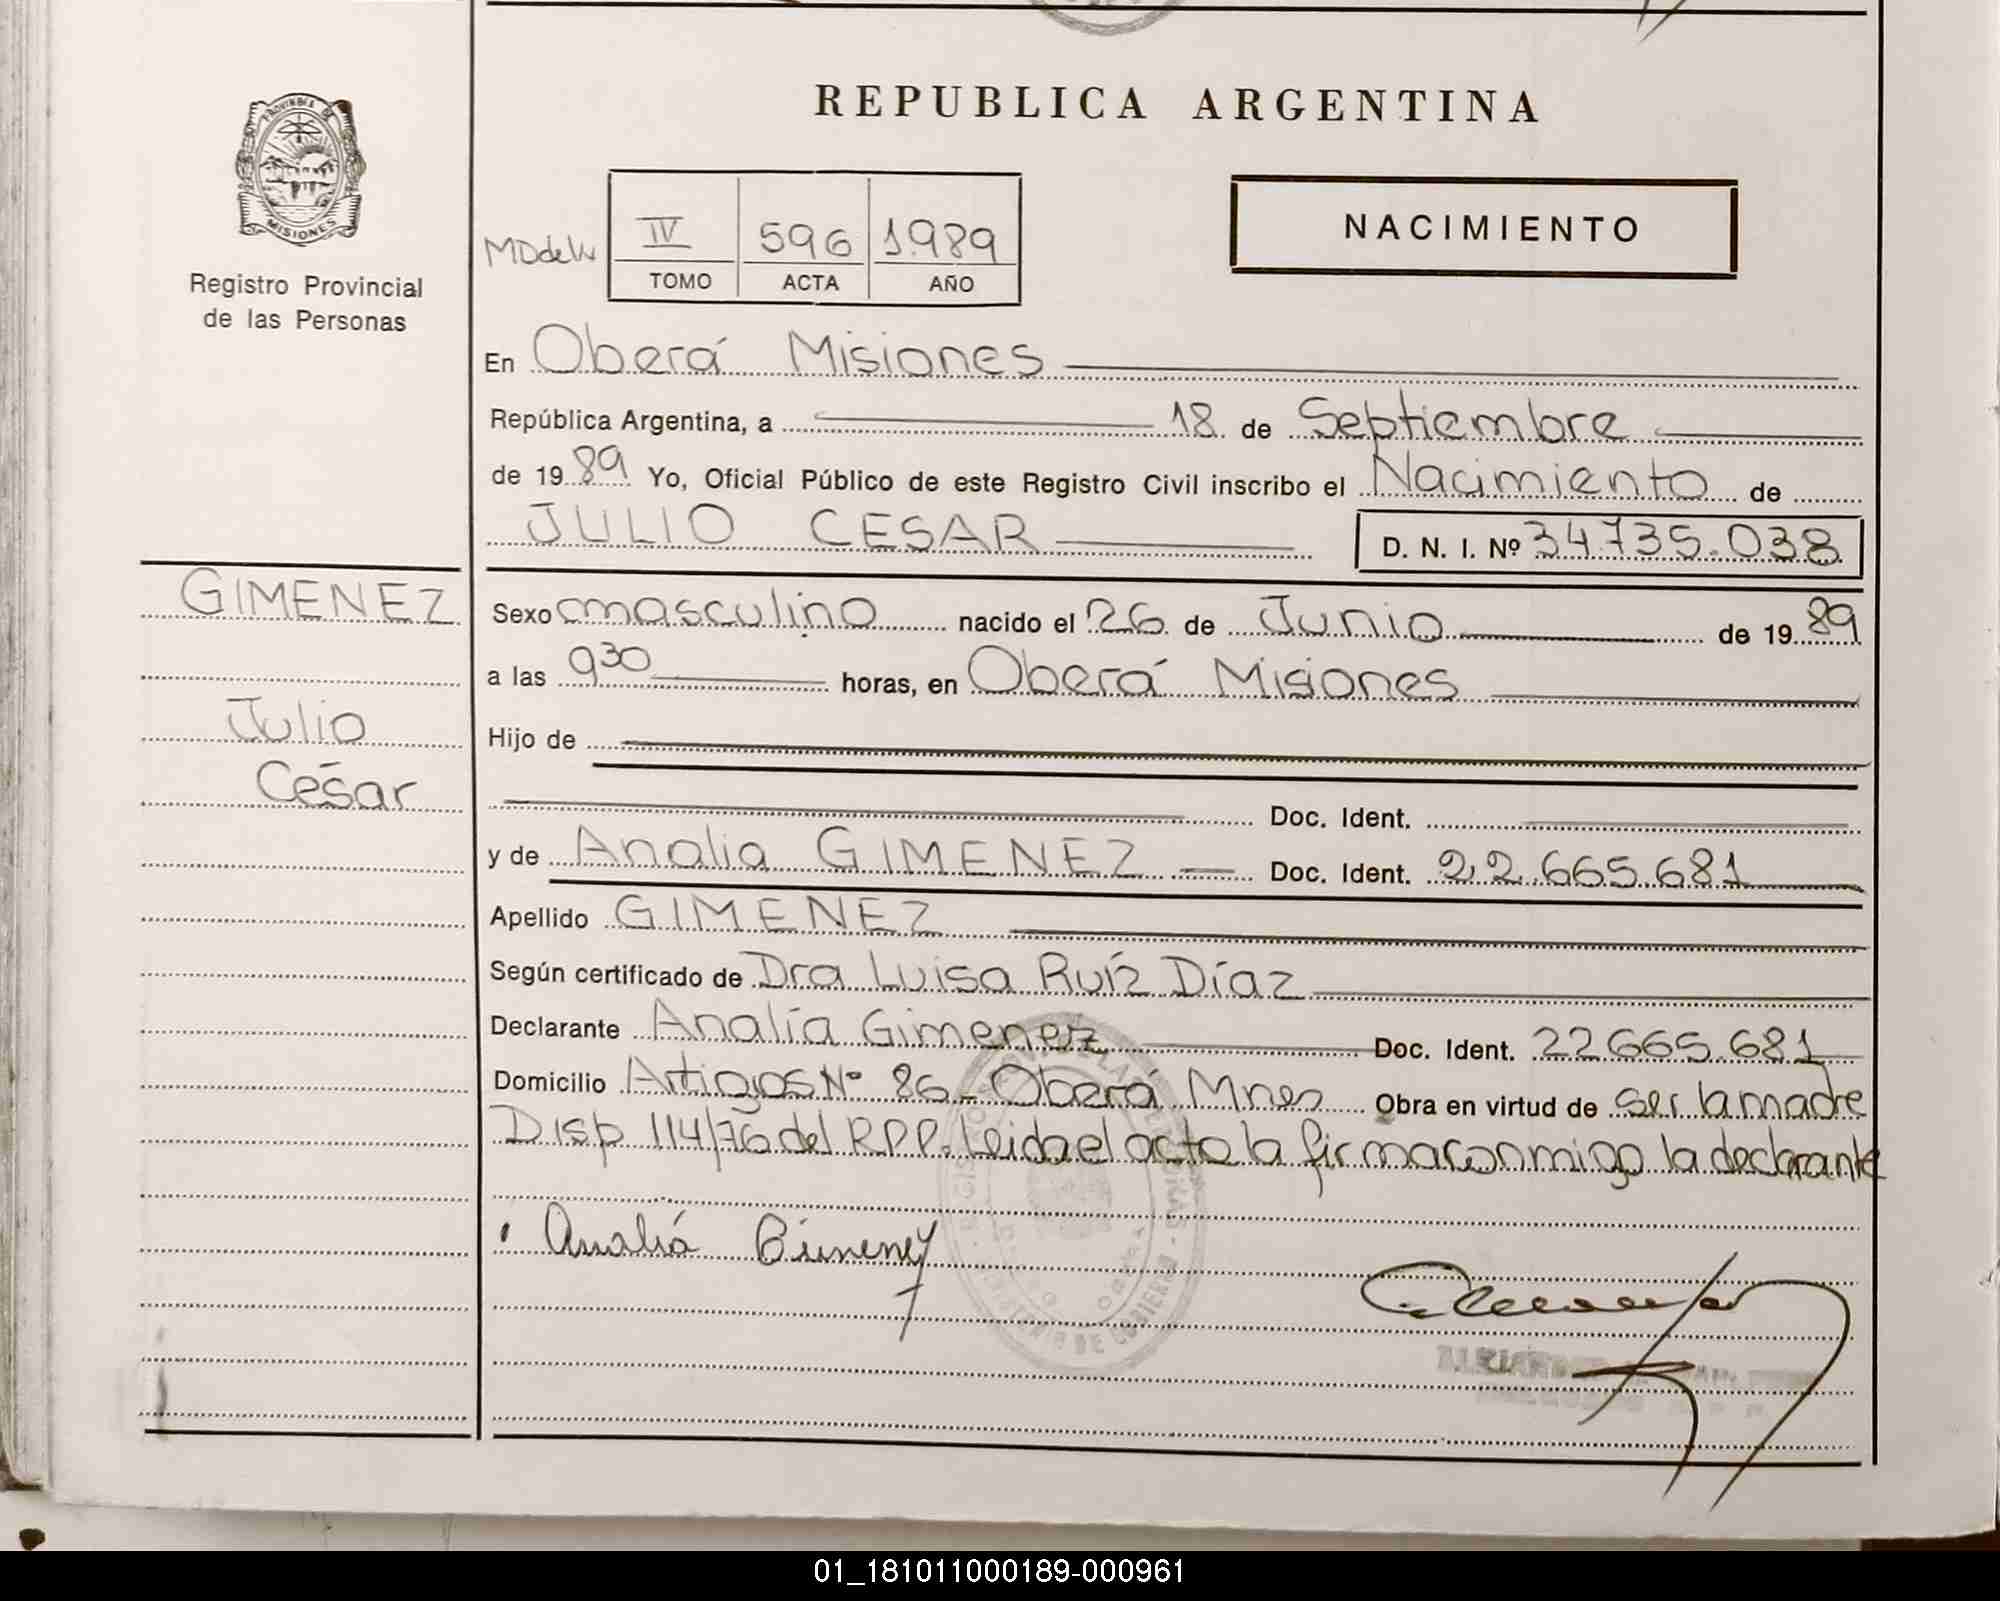 REPUBLICA ARGENTINA
PROVINCIA DE
MISIONES
Registro Provincial
de las Personas
IV 596 1.989
TOMO ACTA AÑO
NACIMIENTO
En Oberá Misiones
República Argentina, a 18 de Septiembre
de 1989 Yo, Oficial Público de este Registro Civil inscribo el Nacimiento de
JULIO CESAR D. N. I. Nº 34.735.038
GIMENEZ
Julio
César
Sexo masculino nacido el 26 de Junio de 1989
a las 930 horas, en Oberá Misiones
Hijo de
Doc. Ident.
y de Analia GIMENEZ Doc. Ident. 22.665.681
Apellido GIMENEZ
Según certificado de Dra Luisa Ruíz Díaz
Declarante Analía Gimenez Doc. Ident. 22665.681
Domicilio Artigas Nº 86 - Oberá Mnes Obra en virtud de ser la madre
Disp 114/76 del R.P.P. Leida el acta la firma conmigo la declarante
Analiá Gimenez
MINISTERIO DE GOBIERNO
01_181011000189-000961